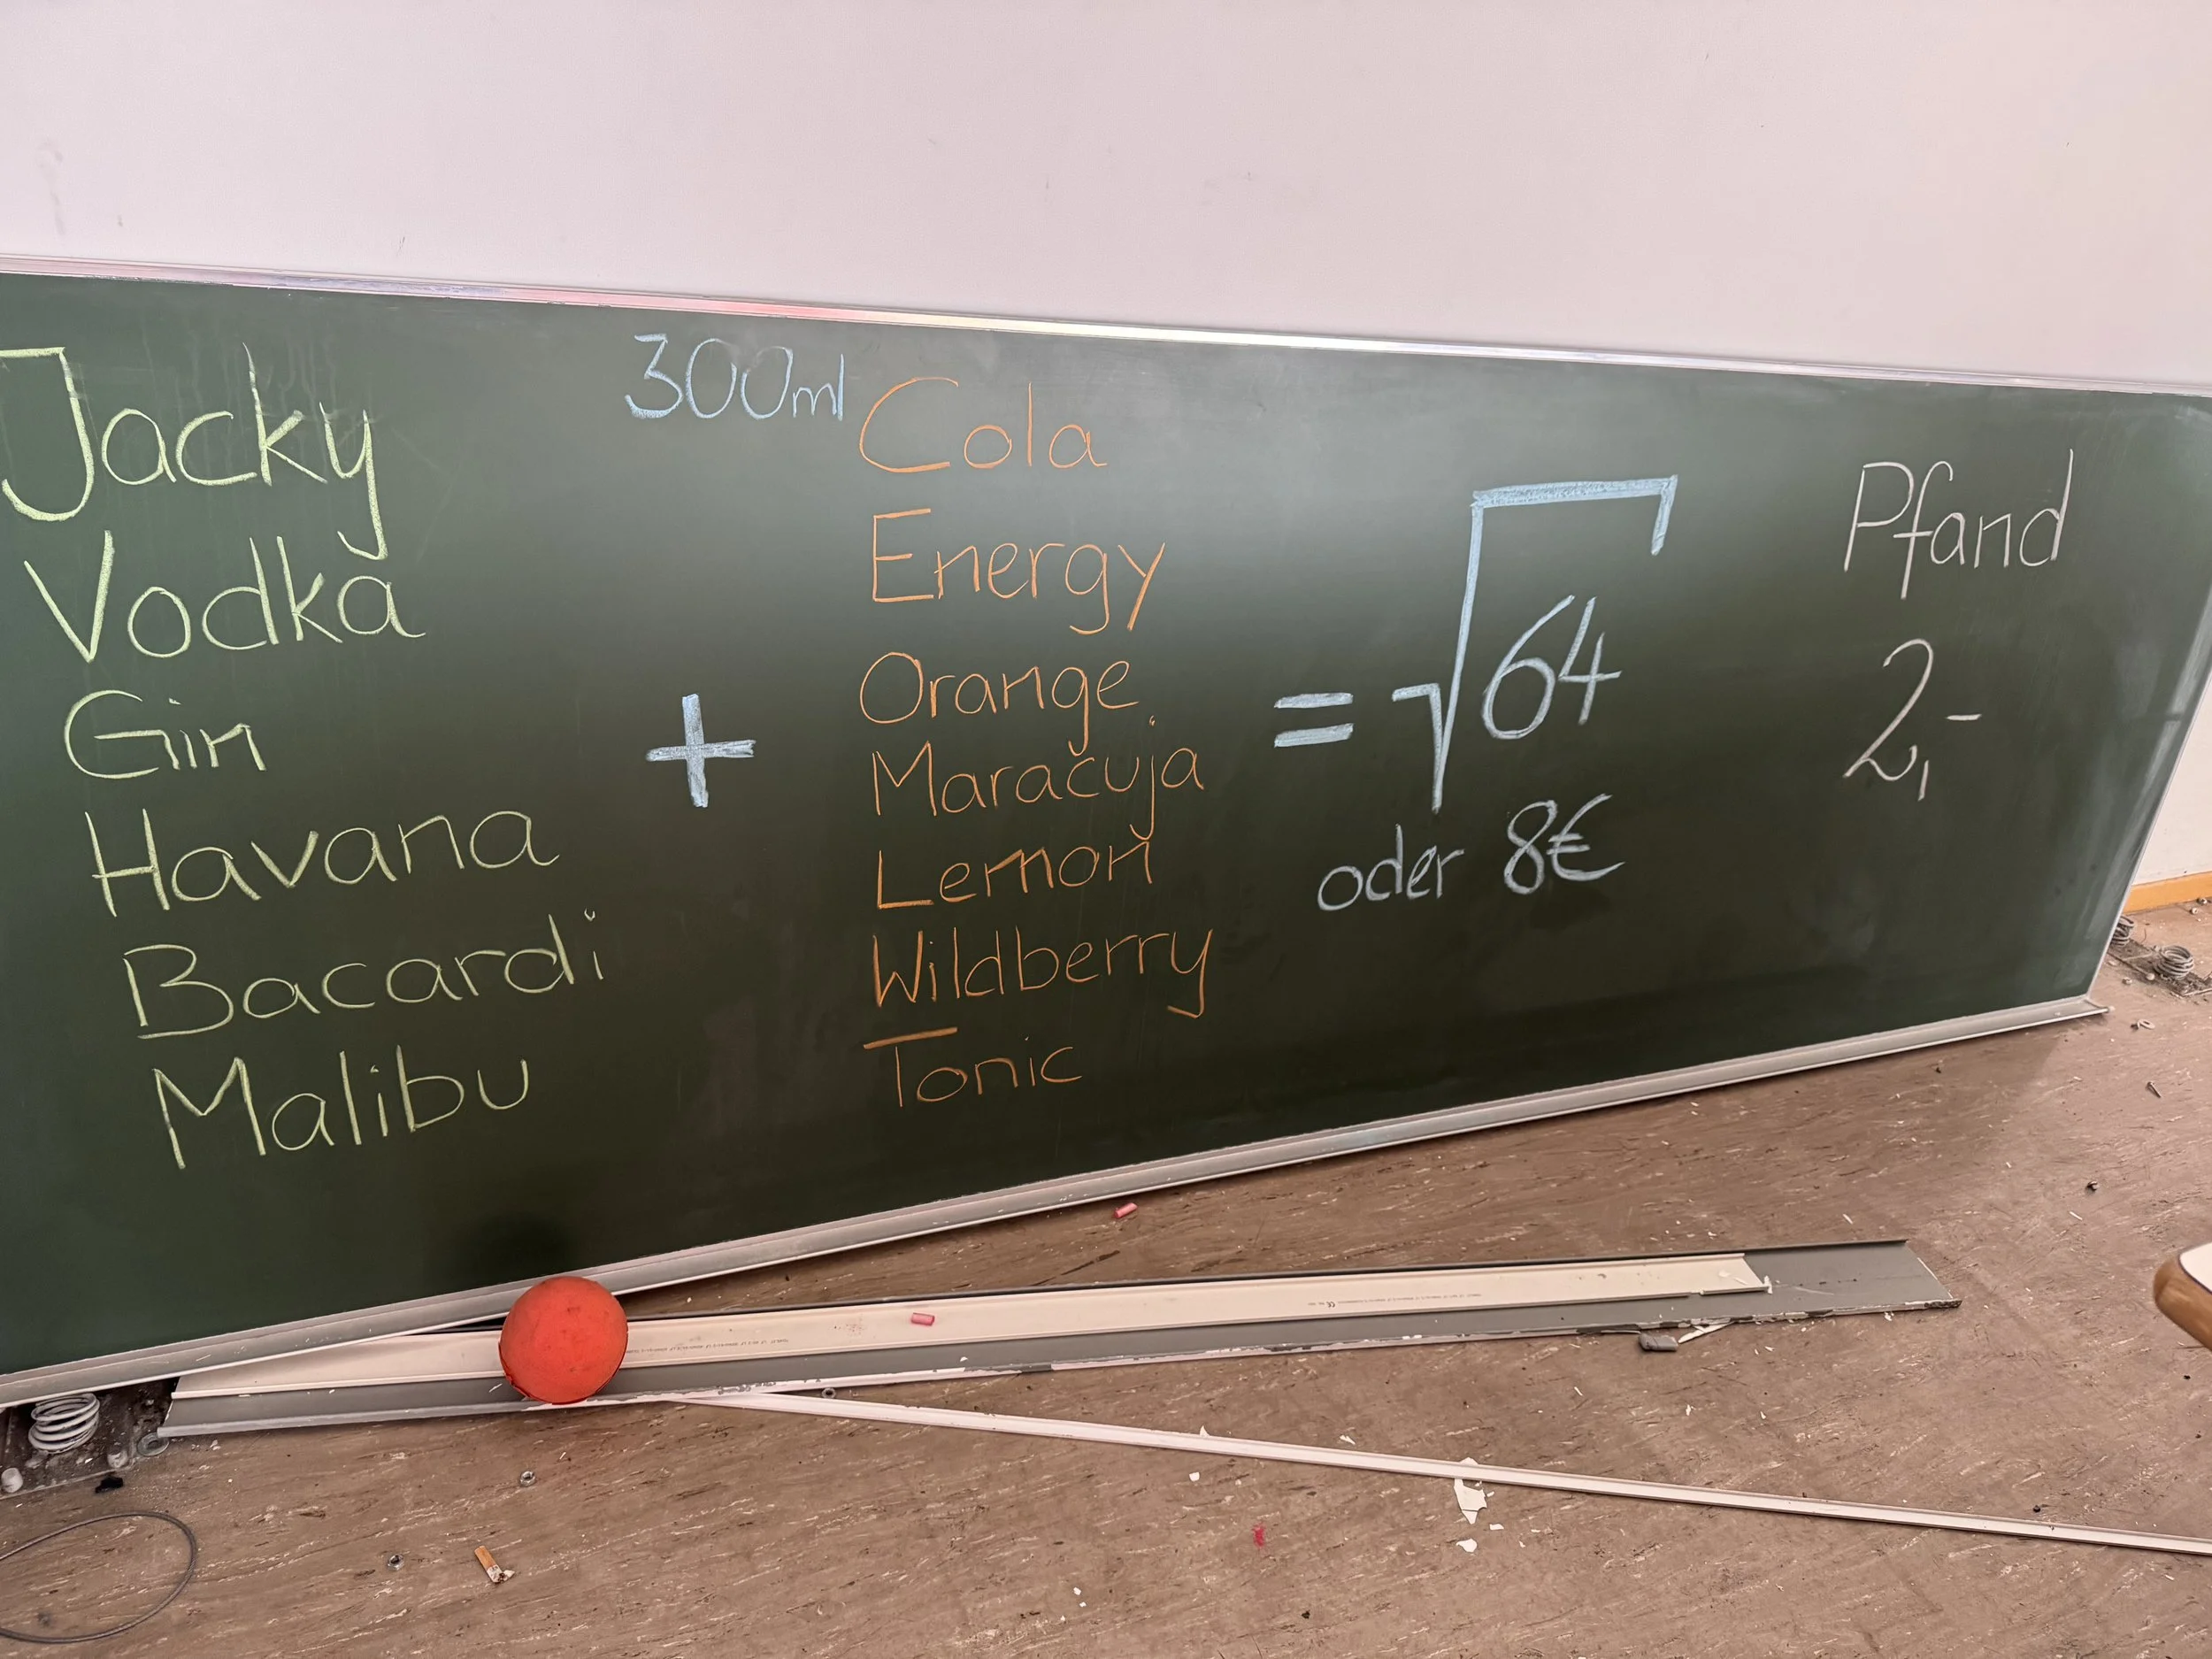 Jacky
Vodka
Gin
Havana
Bacardi
Malibu
300ml
+
Cola
Energy
Orange
Maracuja
Lemon
Wildberry
Tonic
= √64
oder 8€
Pfand
2,-